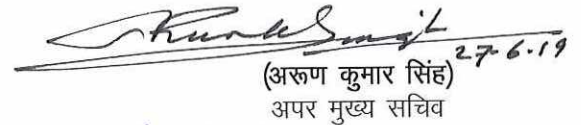 27-6-19
(अरूण कुमार सिंह)
अपर मुख्य सचिव